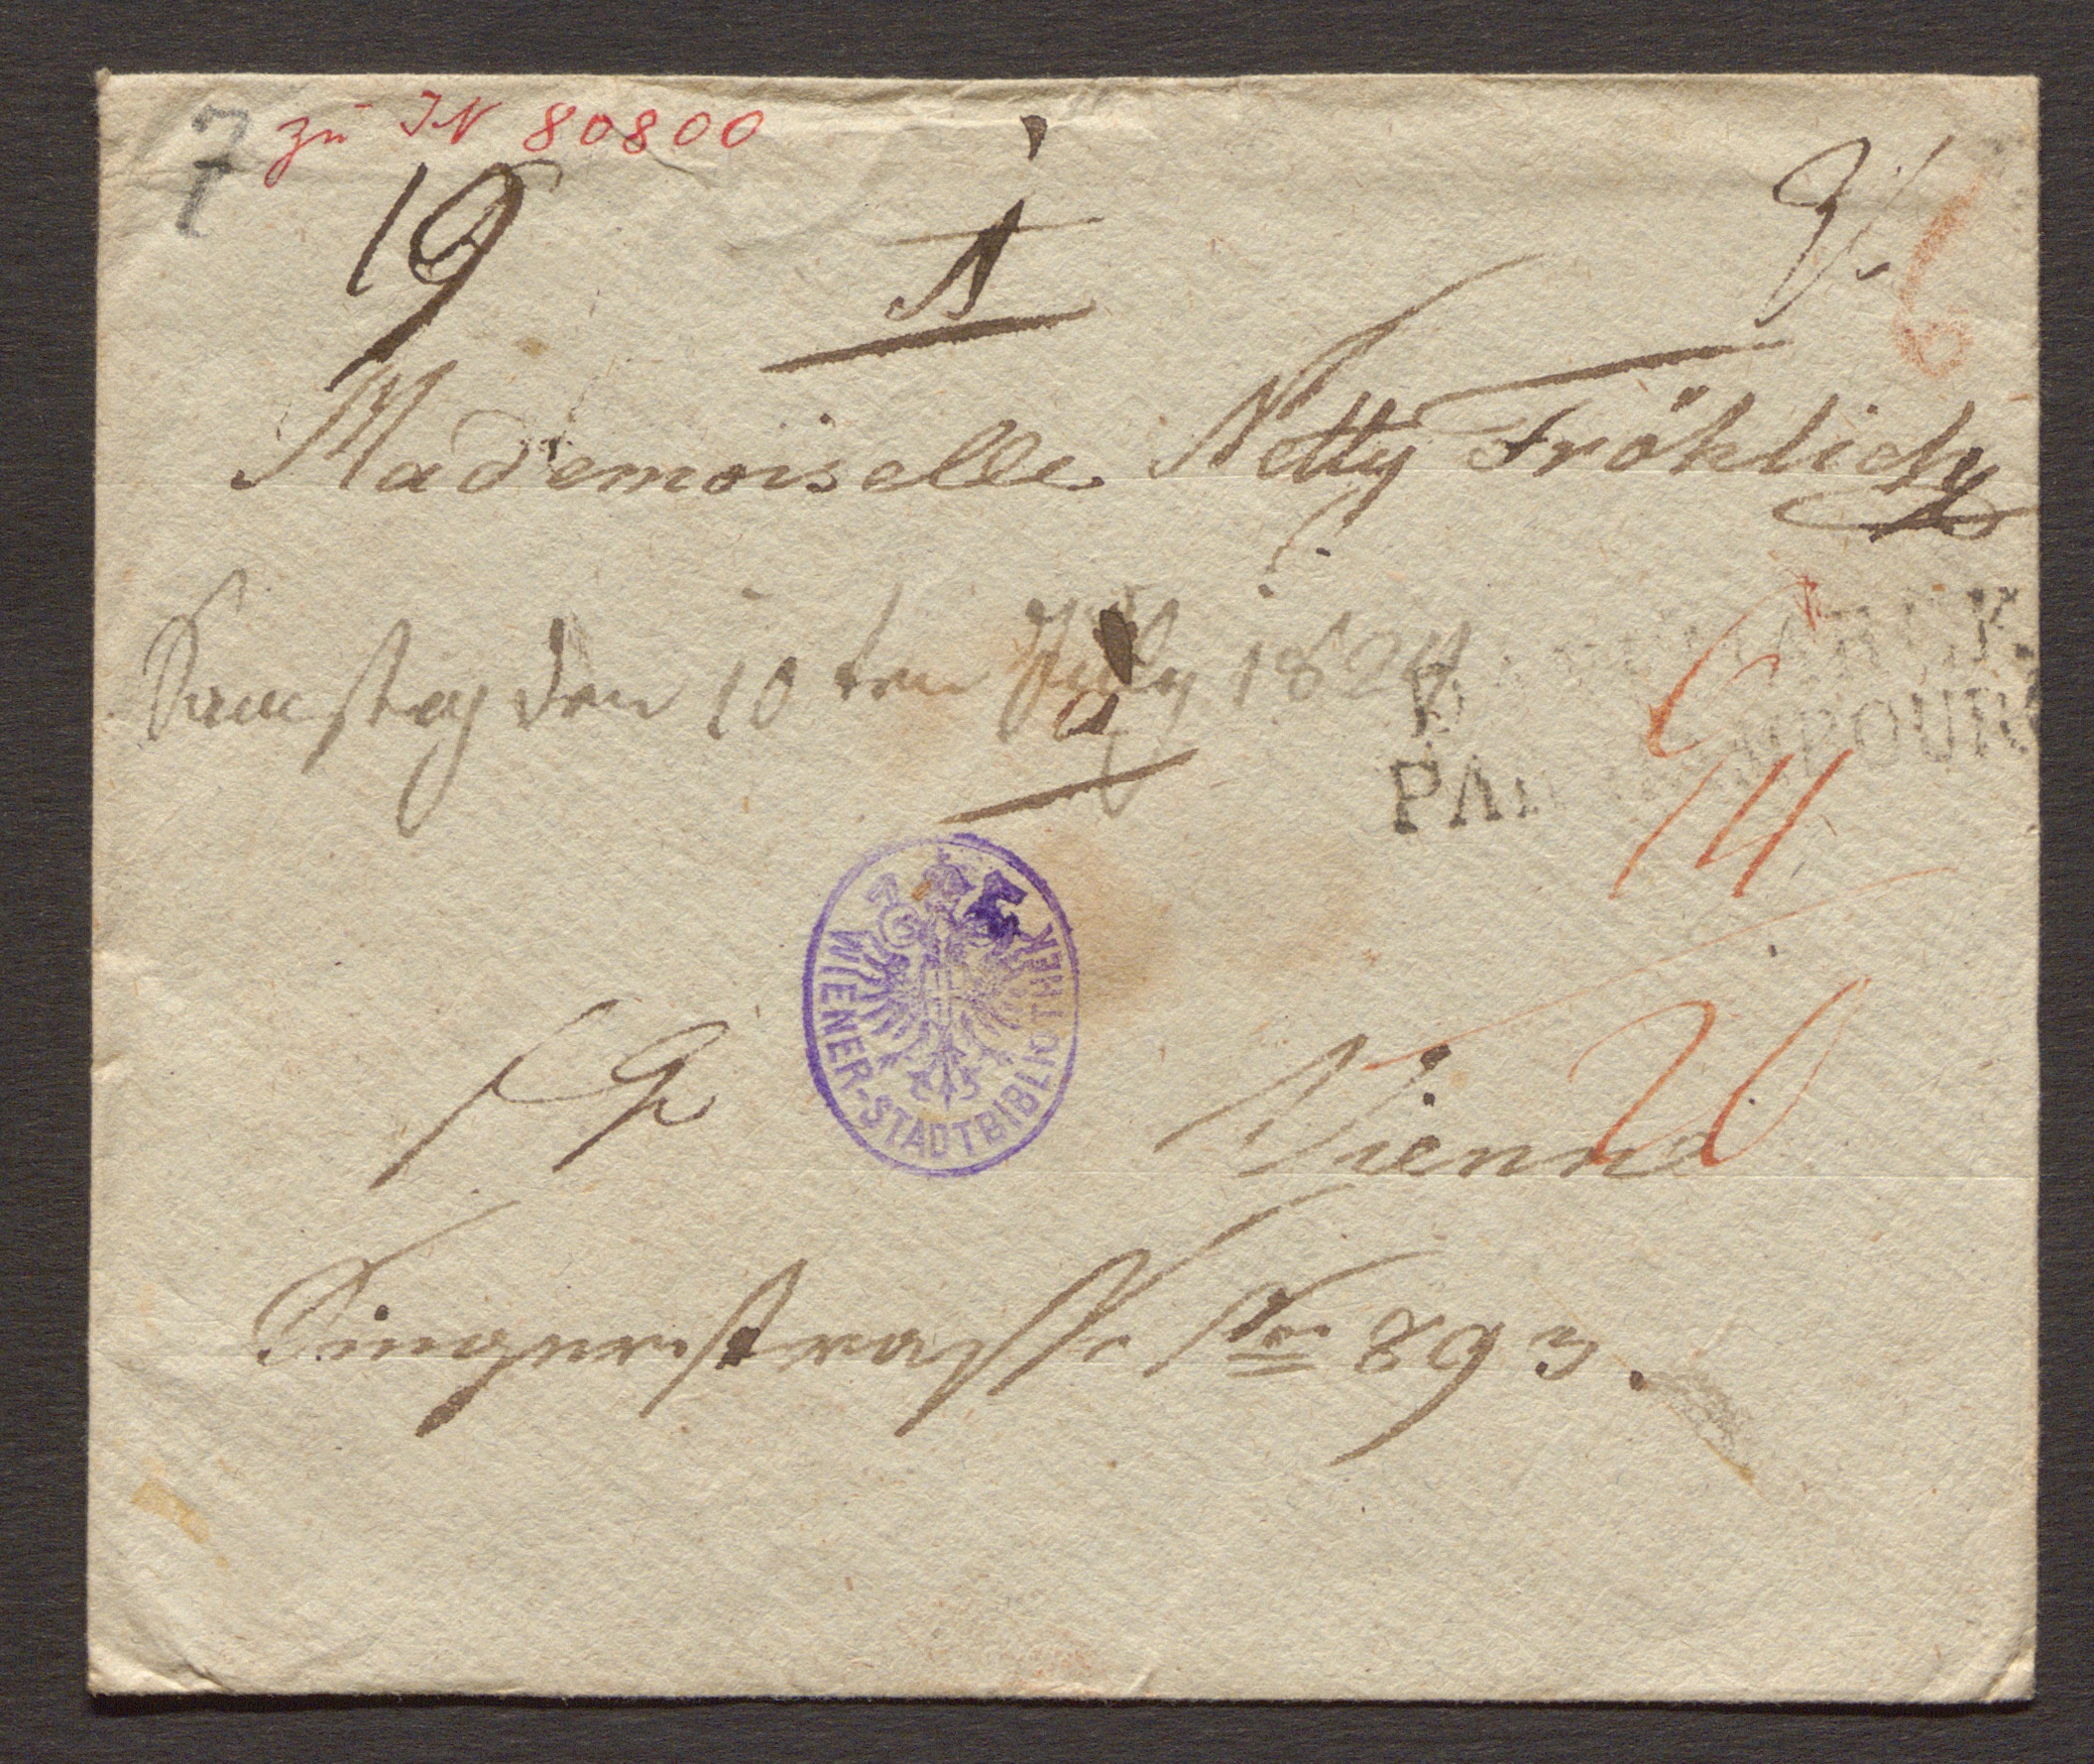 7 zu IN 80800
19
A
Mademoiselle Netty Fröhlich
Samstag den 10ten July 1824
a
20
WIENER-STADTBIBLIOTHEK
Vienne
Singerstrasse Nro 893.